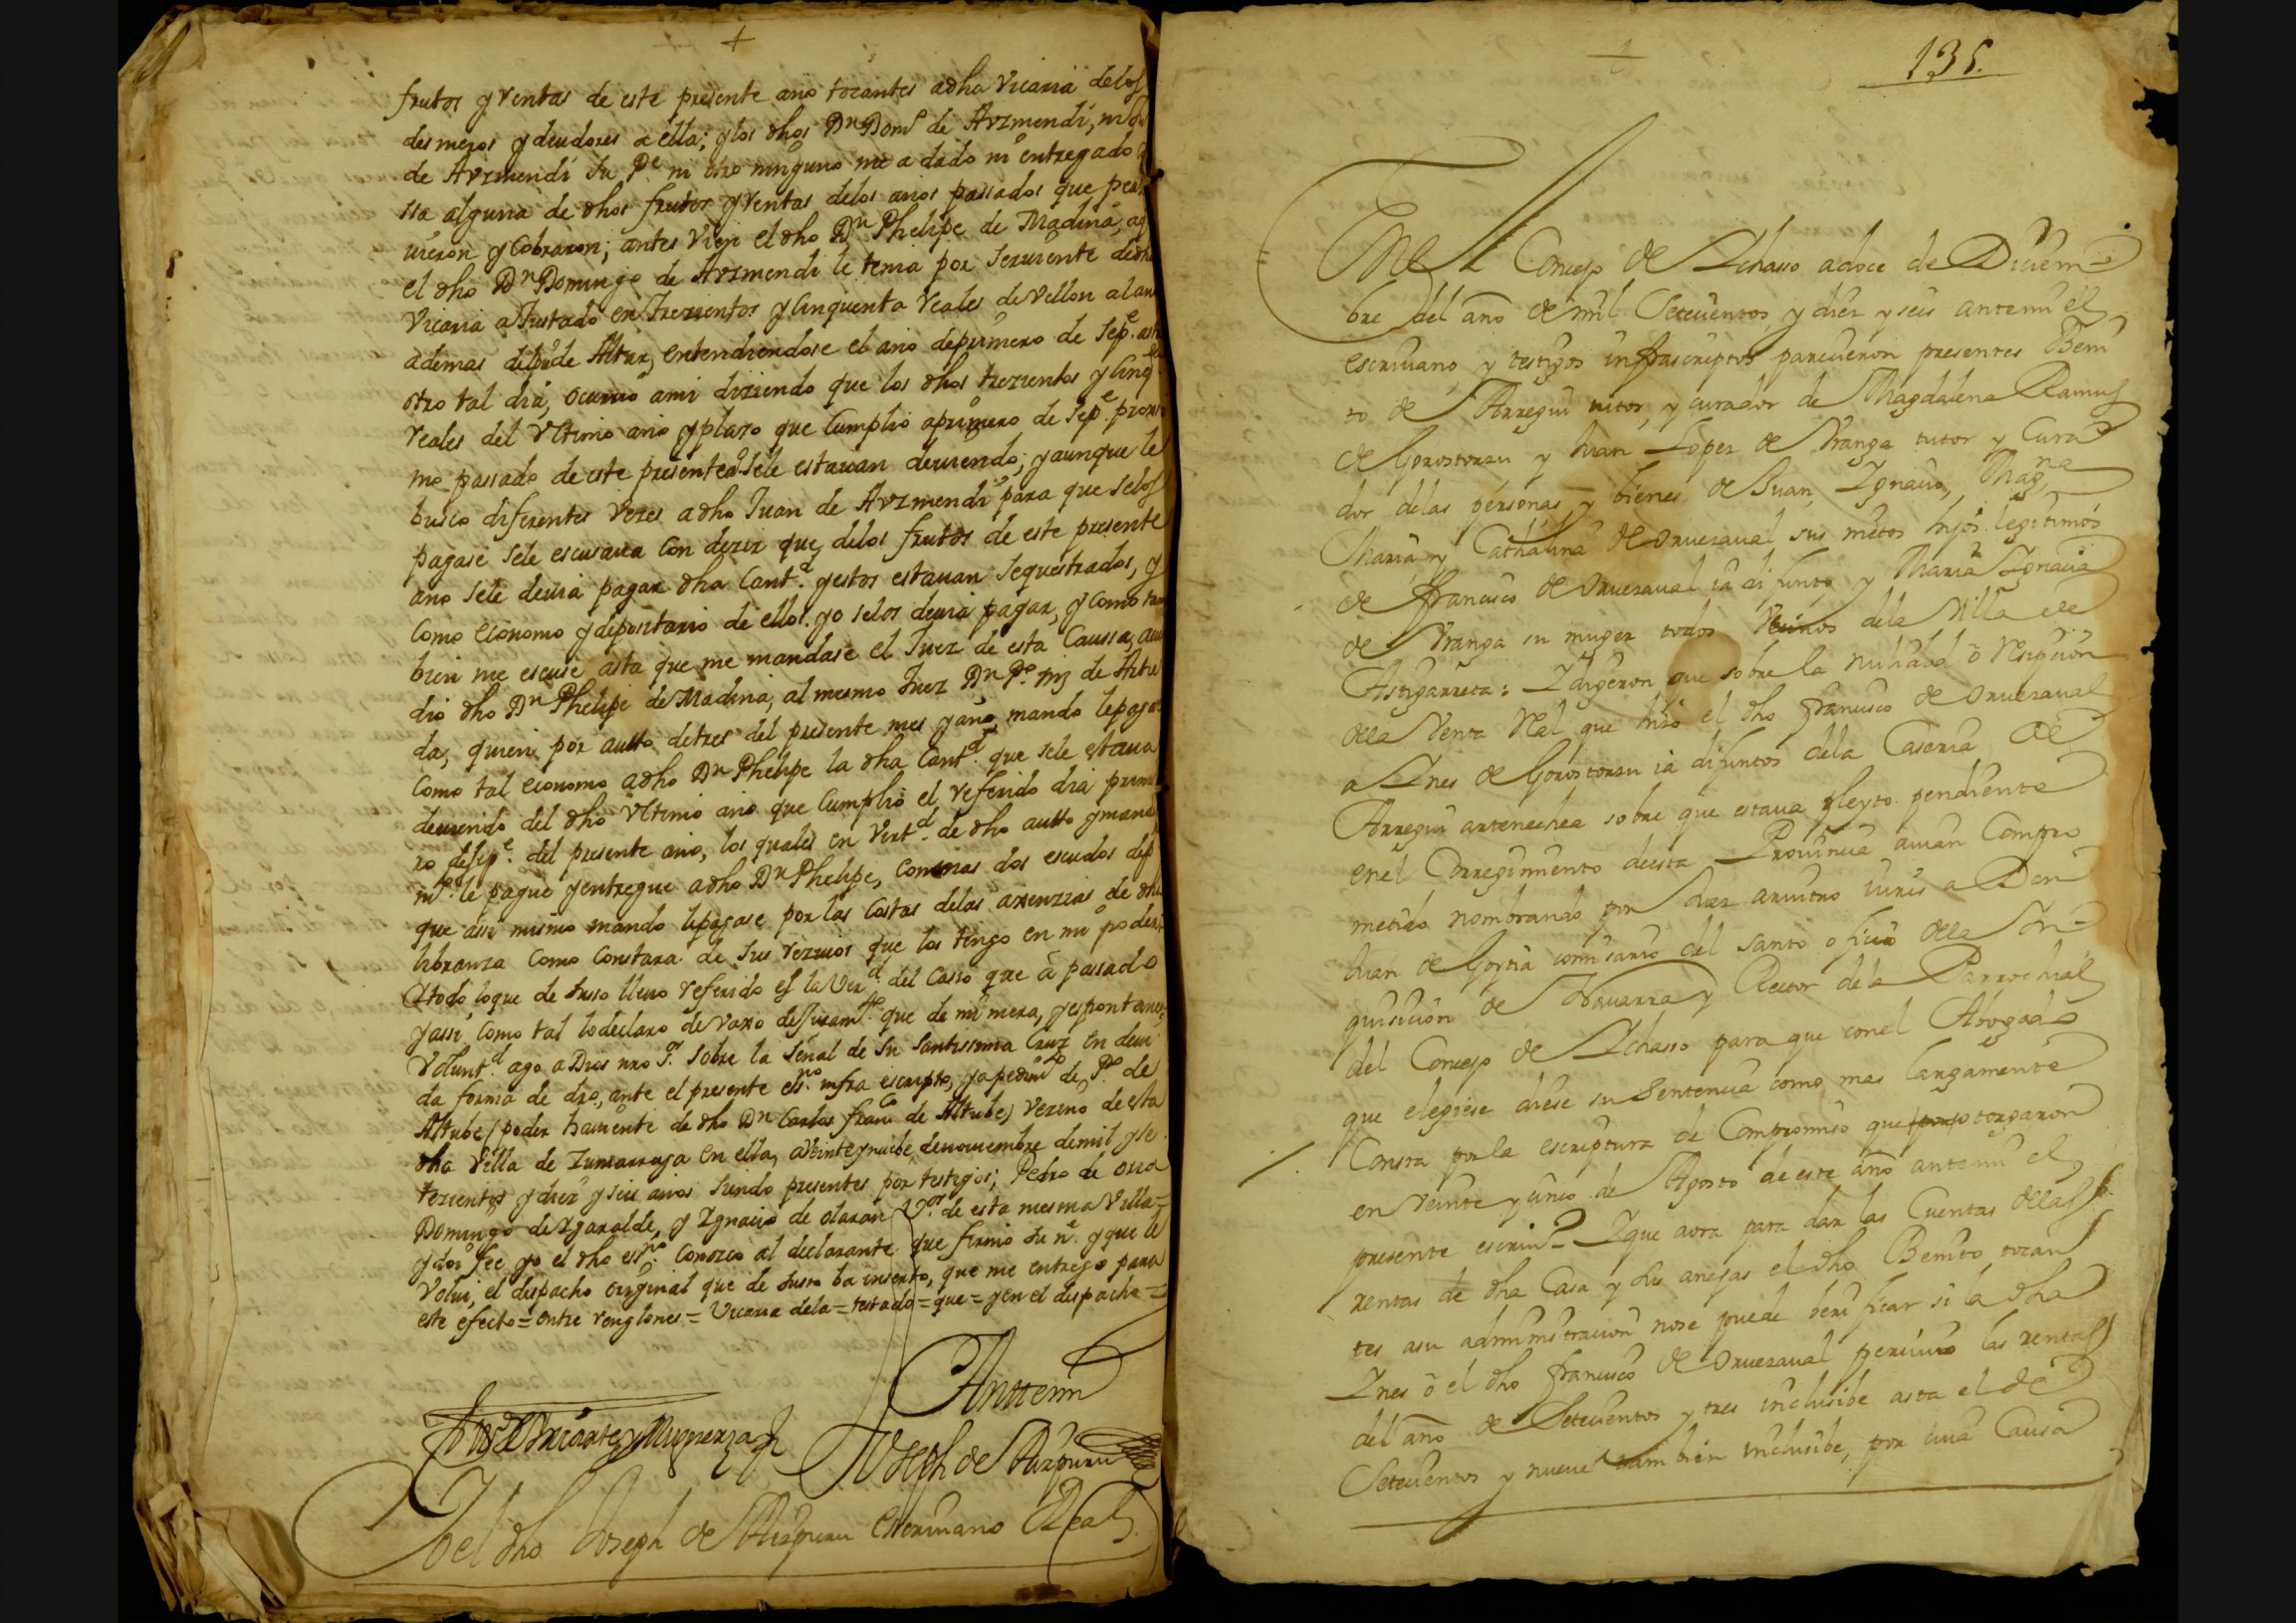 frutos y rentas de este presente año tocantes a dha Vicaria delos
desmeros y deudores a ella; y los dhos Dn Domo de Arzmendi, ni
de Arzmendi su Pe ni otro ninguno me a dado ni entregado
sa alguna de dhos frutos y rentas delos años passados que per
uieron y Cobraron; antes vien el dho Dn Phelipe de Madina, a q
el dho Dn Domingo de Arzmendi le tenia por seruiente de dha
Vicaria a Justado en trezientos y Cinquenta reales de vellon al añ
ademas del de Altar, entendiendose el año de primero de Sepe asta
otro tal dia, ocurrio ami diziendo que los dhos trezientos y Cinqta
reales del Vltimo año y plazo que Cumplio a primero de Sepe proxi
mo passado de este presente año sele estauan deuiendo; y aunque le
busco diferentes vezes a dho Juan de Arzmendi para que selos
pagase sele escusaua con dezir que delos frutos de este presente
año sele deuia pagar dha Cantd. y estos estauan sequestrados, y
Como economo y depositario de ellos. yo selos deuia pagar, y como tam
bien me escuse asta que me mandase el Juez de esta Caussa, acu
dio dho Dn Phelipe de Madina, al mesmo Juez Dn Po. mz de Artu
da, quien por autto de tres del presente mes y año, mando le pagase
Como tal economo a dho Dn Phelipe la dha Cantd. que sele estaua
deuiendo del dho Vltimo año que Cumplio el referido dia prime
ro de sepe. del presente año, los quales en virtd. de dho autto y manda
mto. le pague y entregue a dho Dn Phelipe, Con mas dos escudos de pta
que assi mismo mando le pagase por las Costas delas assenzias de dha
libranza Como Constara de sus reziuos que los tengo en mi poder,
Y todo loque de suso lleuo referido es la Verd. del Casso que a passado
y assi Como tal lo declaro devaxo de Juramto que de mi mera, y espontanea
Voluntd. ago a Dios nro Sr. sobre la señal de su santissima Cruz en deui
da forma de dro, ante el presente essno. infra escripto, y a pedimto de Po de
Altube, poder hauiente de dho Dn Carlos Franco de Altube, vezino de esta
dha Villa de Zumarraga en ella, a veinte y nuebe de nouiembre de mil y se
tezientos y diez y seis años siendo presentes por testigos; Pedro de
Domingo de Ygaralde, y Ygnacio de olaran Vos. de esta mesma villa =
y doi fee yo el dho essno. Conozco al declarante que firmo su ne. y que le
Volui, el despacho original que de suso ba inserto, que me entrego para
este efecto = entre renglones = Vicaria dela = testado = que = y en el despacho =
Anttemi
Joseph de Aizpuru
Yo el dho Joseph de Aizpuru escriuano Real
135.
En el Concejo de Ychasso a doce de Diciem-
bre del año de mil Setecientos y diez y seis antemi el
escriuano y testigos infrascriptos parecieron presentes Beni
to de Arregui tutor, y curador de Magdalena Ramus
de Gorostorzu y Juan Lopez de Vranga tutor y Cura
dor delas personas y bienes de Juan, Ygnacio, Magna
Maria, y Cathalina de Oruezaual sus nietos hijos legitimos
de Francisco de Oruezaual ia difunto y Maria Ygnacia
de Vranga su muger todos Vecinos dela Villa de
Astigarreta: Y digeron que sobre la nulidad o resicion
dela Venta Real que hizo el dho Francisco de Oruezaual
a Ynes de Gorostorzu ia difuntos dela Caseria de
Arregui artenechea sobre que estaua pleyto pendiente
enel Corregimiento deesta Prouincia auian Compro
metido nombrando por Juez arbitro iuris a Don
Juan de Goytia comisario del santo oficio dela Yn-
quisicion de Nauarra y Rector dela Parrochial
del Concejo de Ychasso para que conel Abogado
que elegiese diese su sentencia como mas largamente
Consta por la escriptura de Compromiso que otorgaron
en veinte y cinco de Agosto de este año antemi el
presente escriuo. Y que aora para dar las Cuentas delas
rentas de dha Casa y sus anejas el dho Benito tocan
tes asu administracion nose puede verificar si la dha
Ynes o el dho Francisco de Oruezaual perciuio las rentas
del año de Setecientos y tres inclusibe asta el de
Setecientos y nueue tambien inclusibe, por cuia Causa